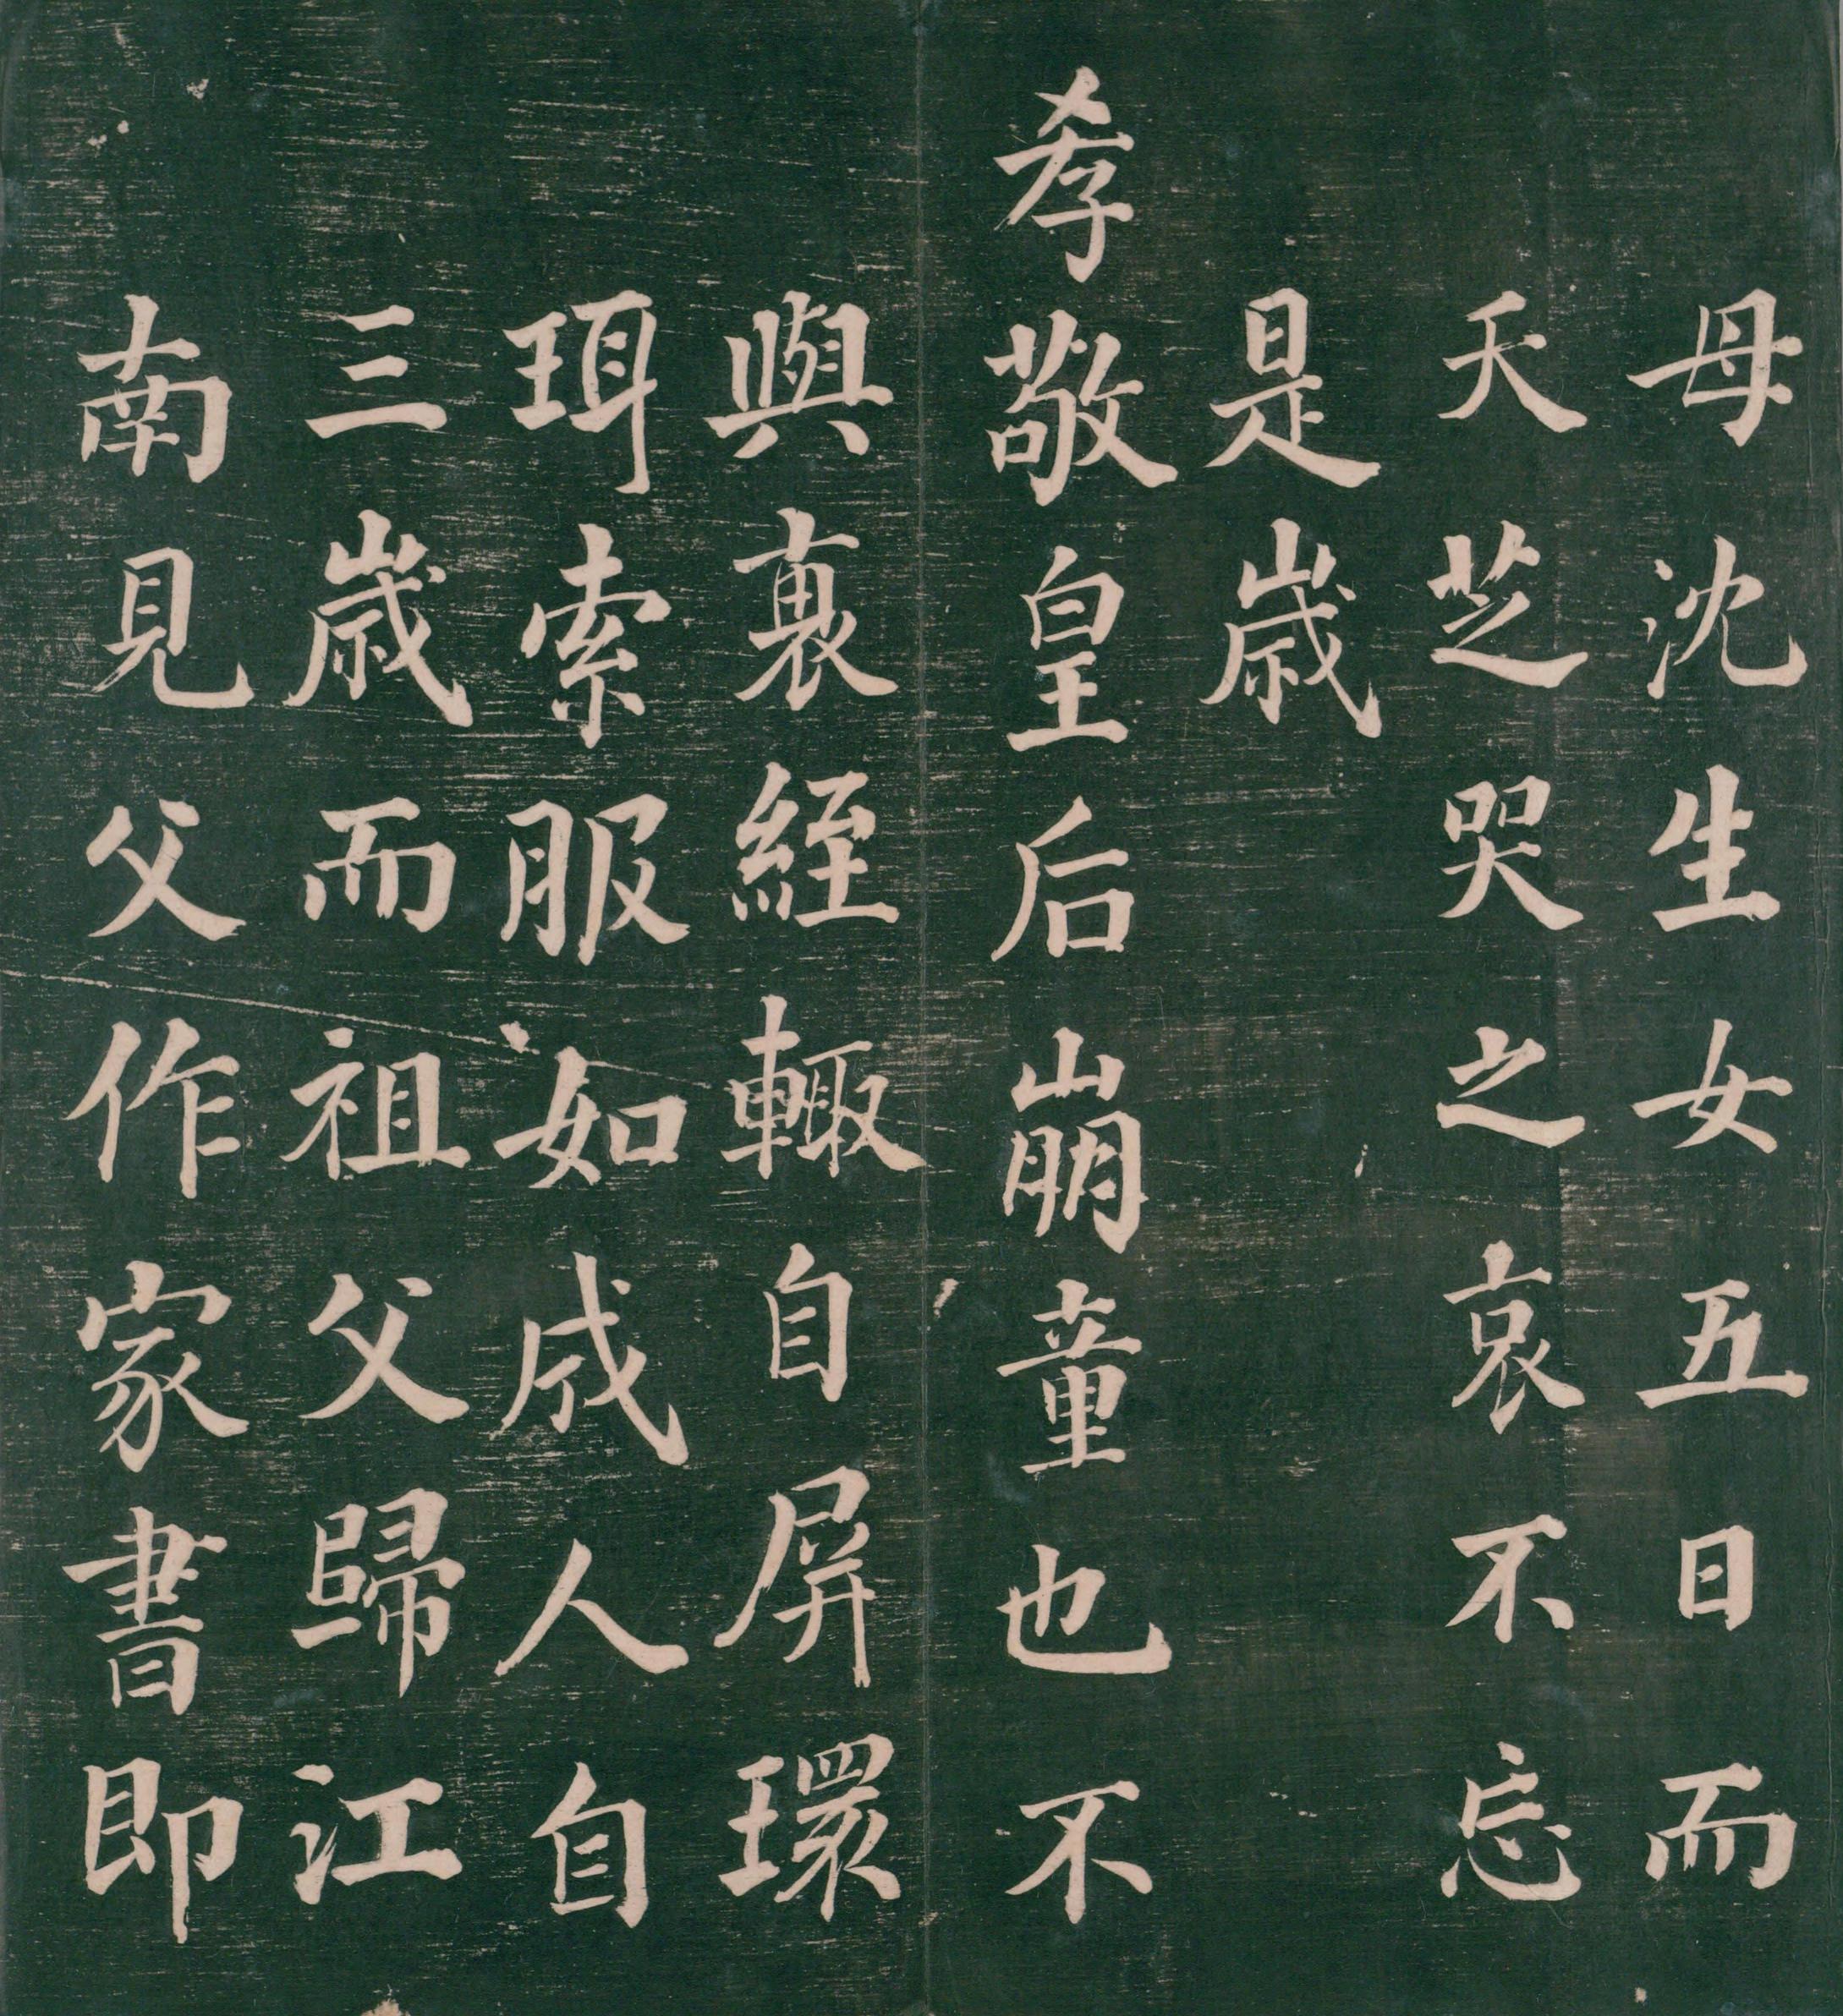 母沈生女五日而
夭芝哭之哀不忘
是歲
孝敬皇后崩童也不
與衰絰輙自屏環
珥索服如成人自
三歲而祖父歸江
南見父作家書即